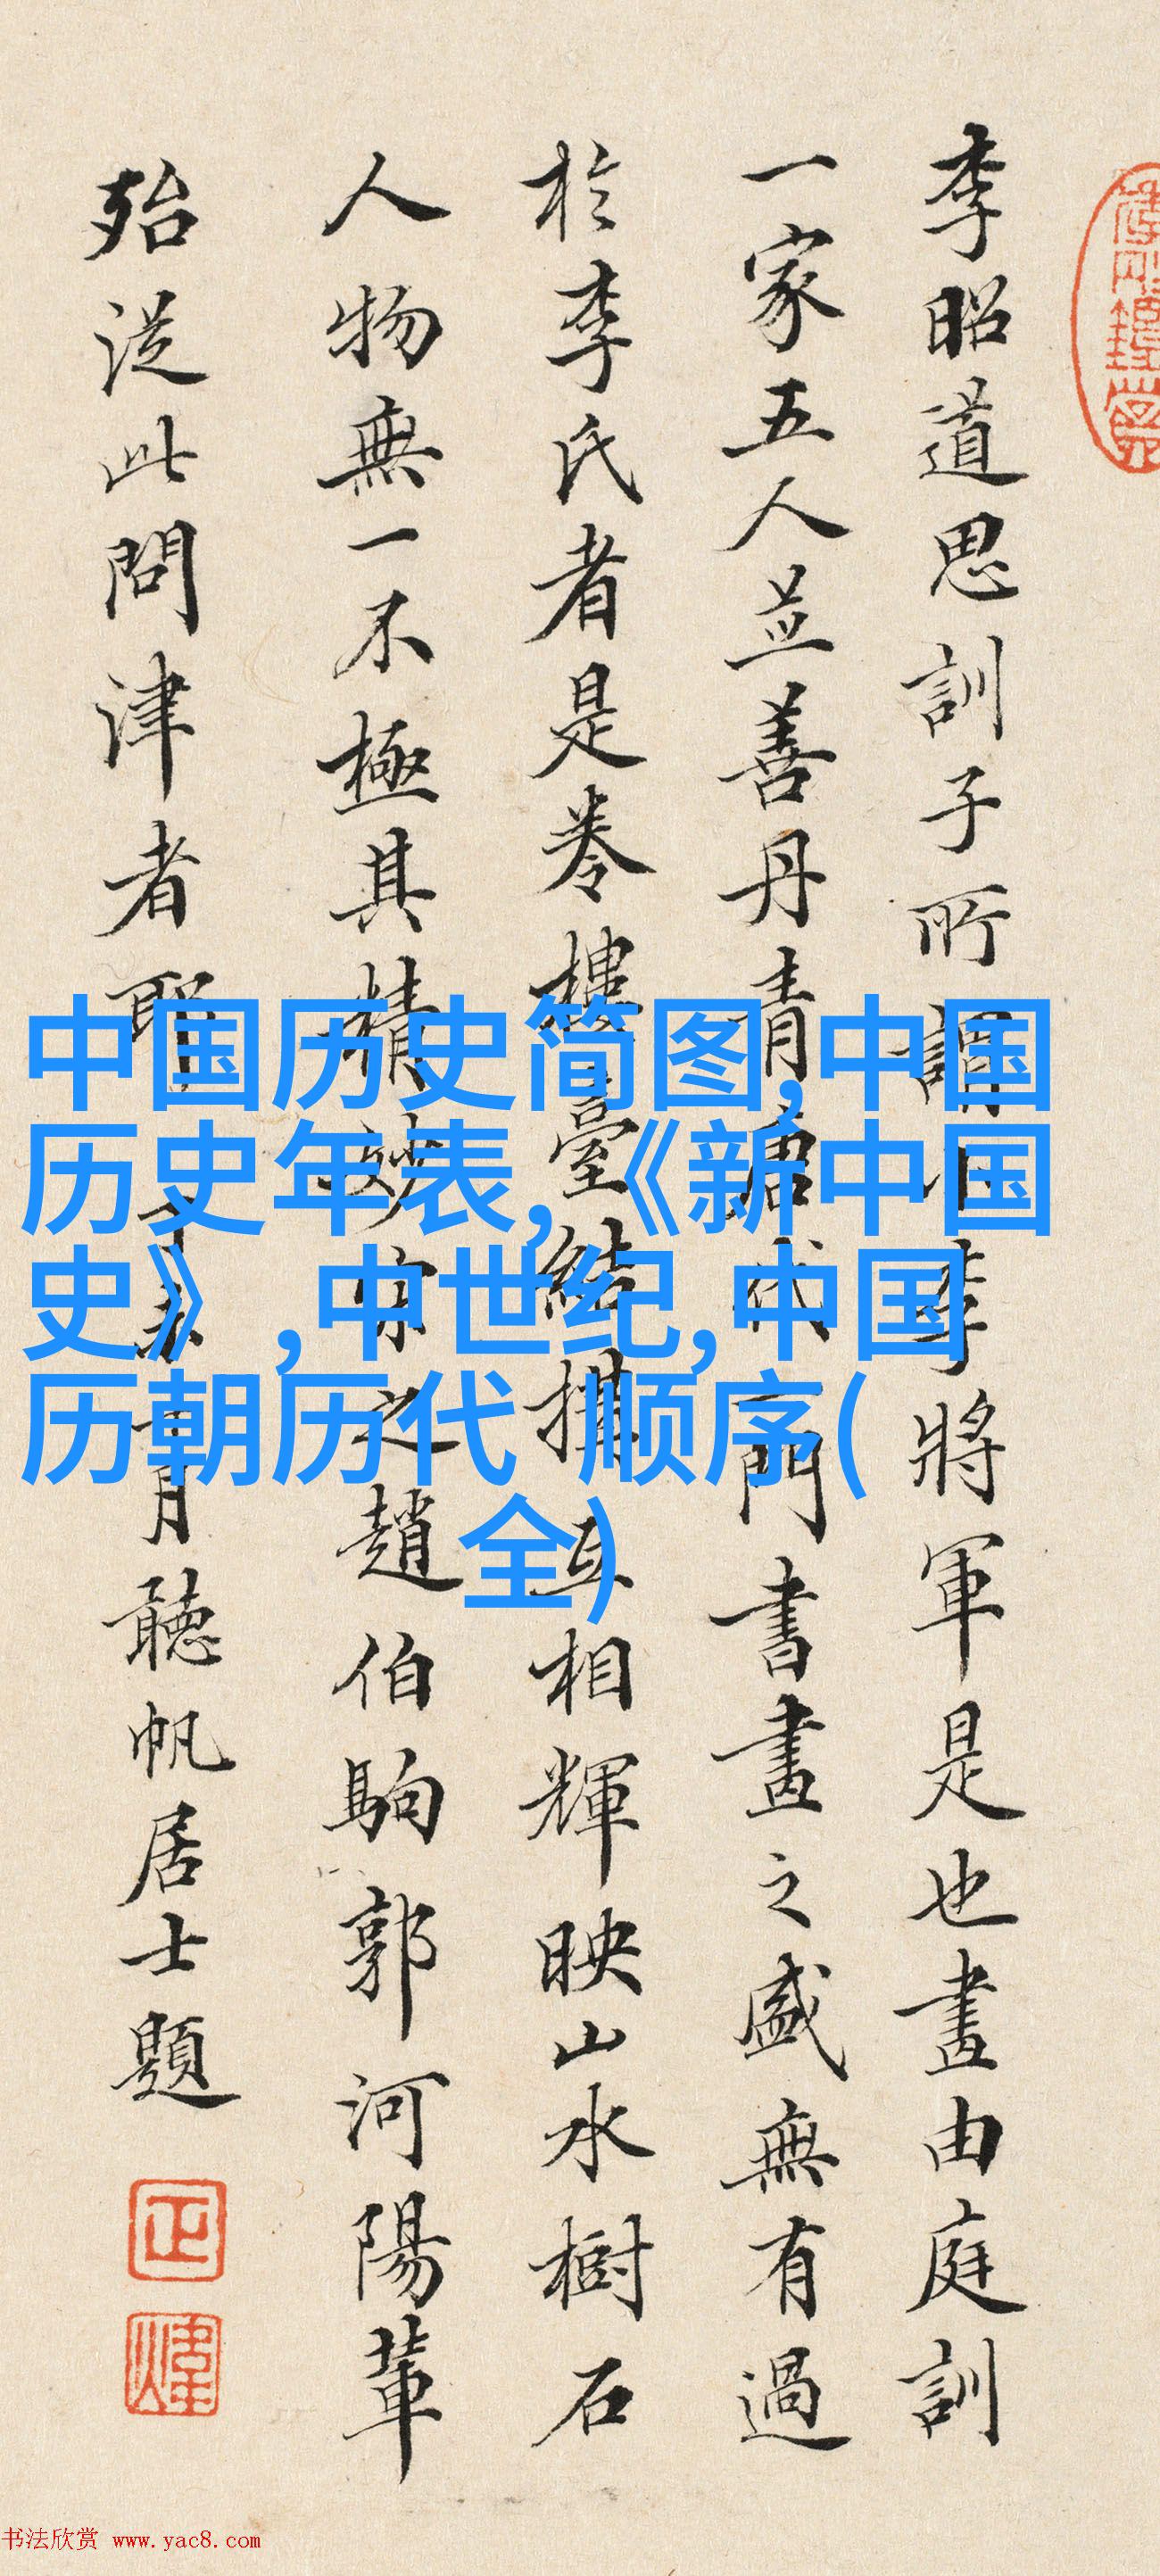 李昭道思訓子所謂小李將軍是也畫由庭訓
一家五人並善丹青唐代一門書畫之盛無有過
於李氏者是卷樓臺結搆互相輝映山水樹石
人物無一不極其精妙宋之趙伯駒郭河陽輩
殆從此問津者耶 月聽帆居士題
正
煒
中国历史简图,中国
历史年表,《新中国
史》,中世纪,中国
历朝历代 顺序(
全)
书法欣赏 www.yac8.com